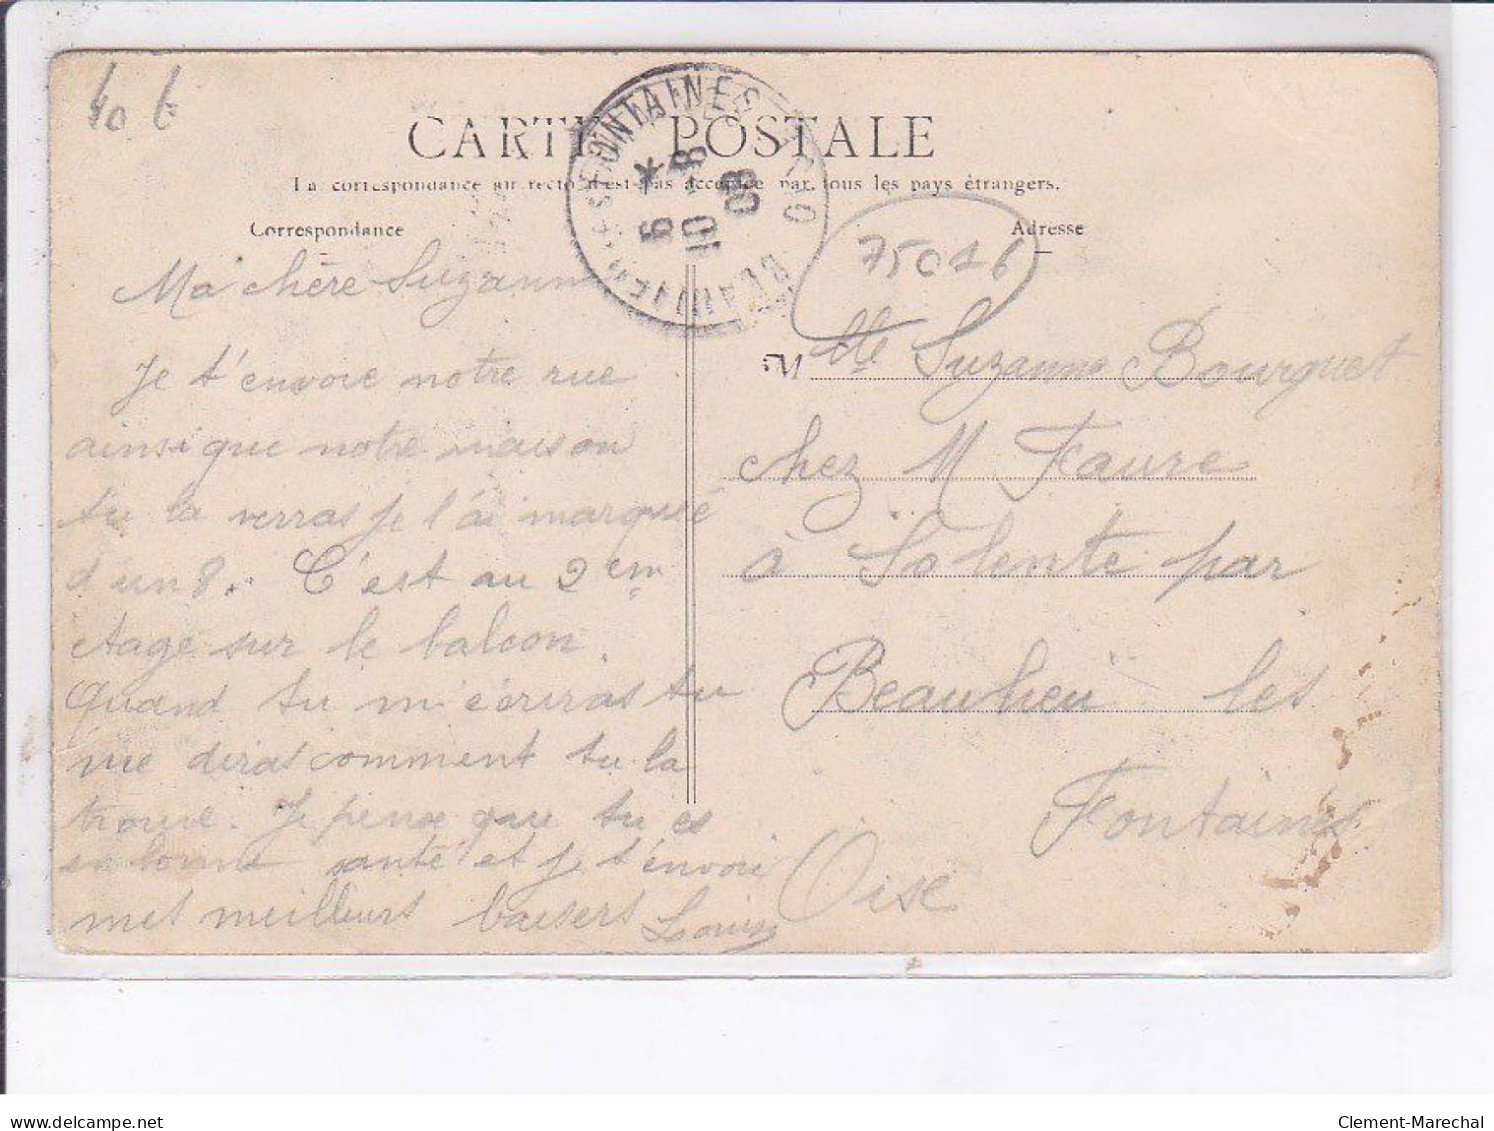 40 €
CARTE POSTALE
La correspondance au recto n'est pas acceptée par tous les pays étrangers.
Correspondance
Adresse
FONTAINES
6 * 10 -8 08
75016
Ma chère Suzanne
Je t'envoie notre rue
ainsi que notre maison
tu la verras je l'ai marquée
d'un 8. C'est au 2em
etage sur le balcon.
Quand tu m'écriras tu
me diras comment tu la
trouve. Je pense que tu es
en bonne santé et je t'envoi
mes meilleurs baisers Louise
Mlle Suzanne Bourguet
chez M Faure
à Solente par
Beaulieu les
Fontaines
Oise
Clement-Marechal
delcampe.net